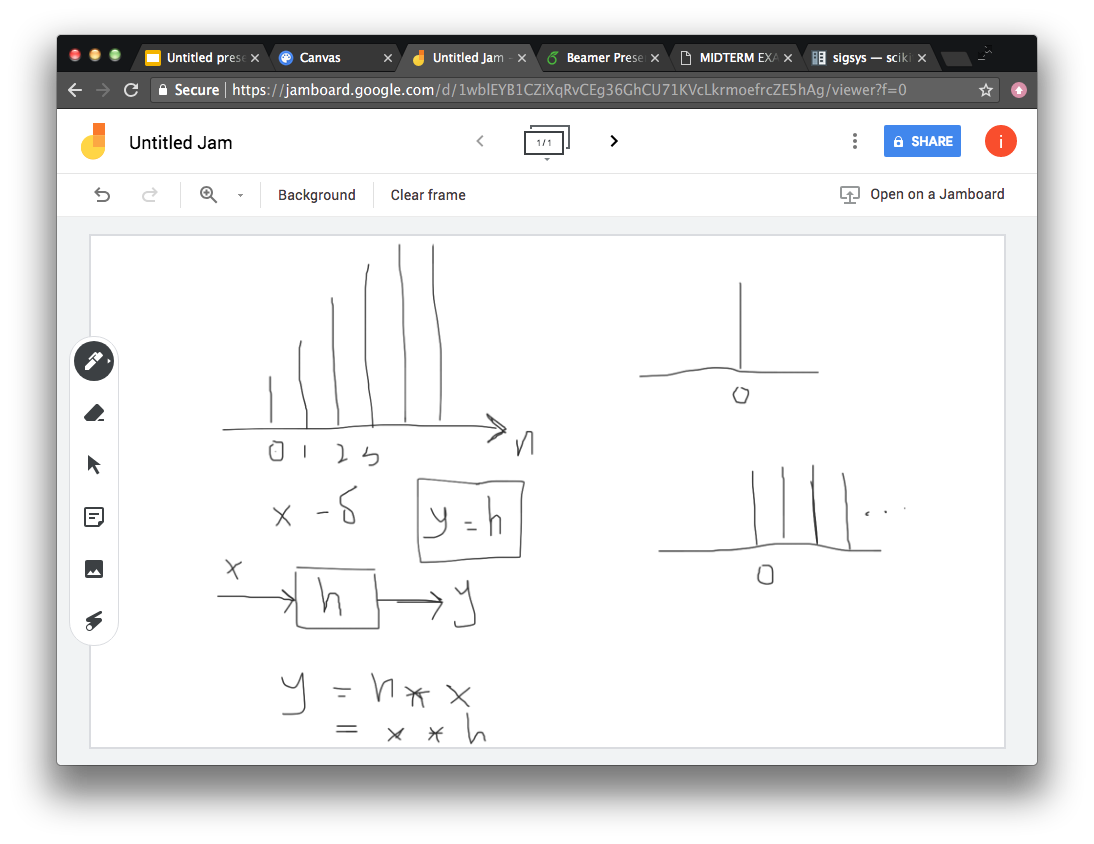 Untitled prese
Canvas
Untitled Jam -
Beamer Prese
MIDTERM EXA
sigsys — sciki
Secure | https://jamboard.google.com/d/1wblEYB1CZiXqRvCEg36GhCU71KVcLkrmoefrcZE5hAg/viewer?f=0
Untitled Jam
1/1
SHARE
i
Background
Clear frame
Open on a Jamboard
0 1 2 3
n
x - δ
y = h
x
h
y
y = h * x
= x * h
0
...
0